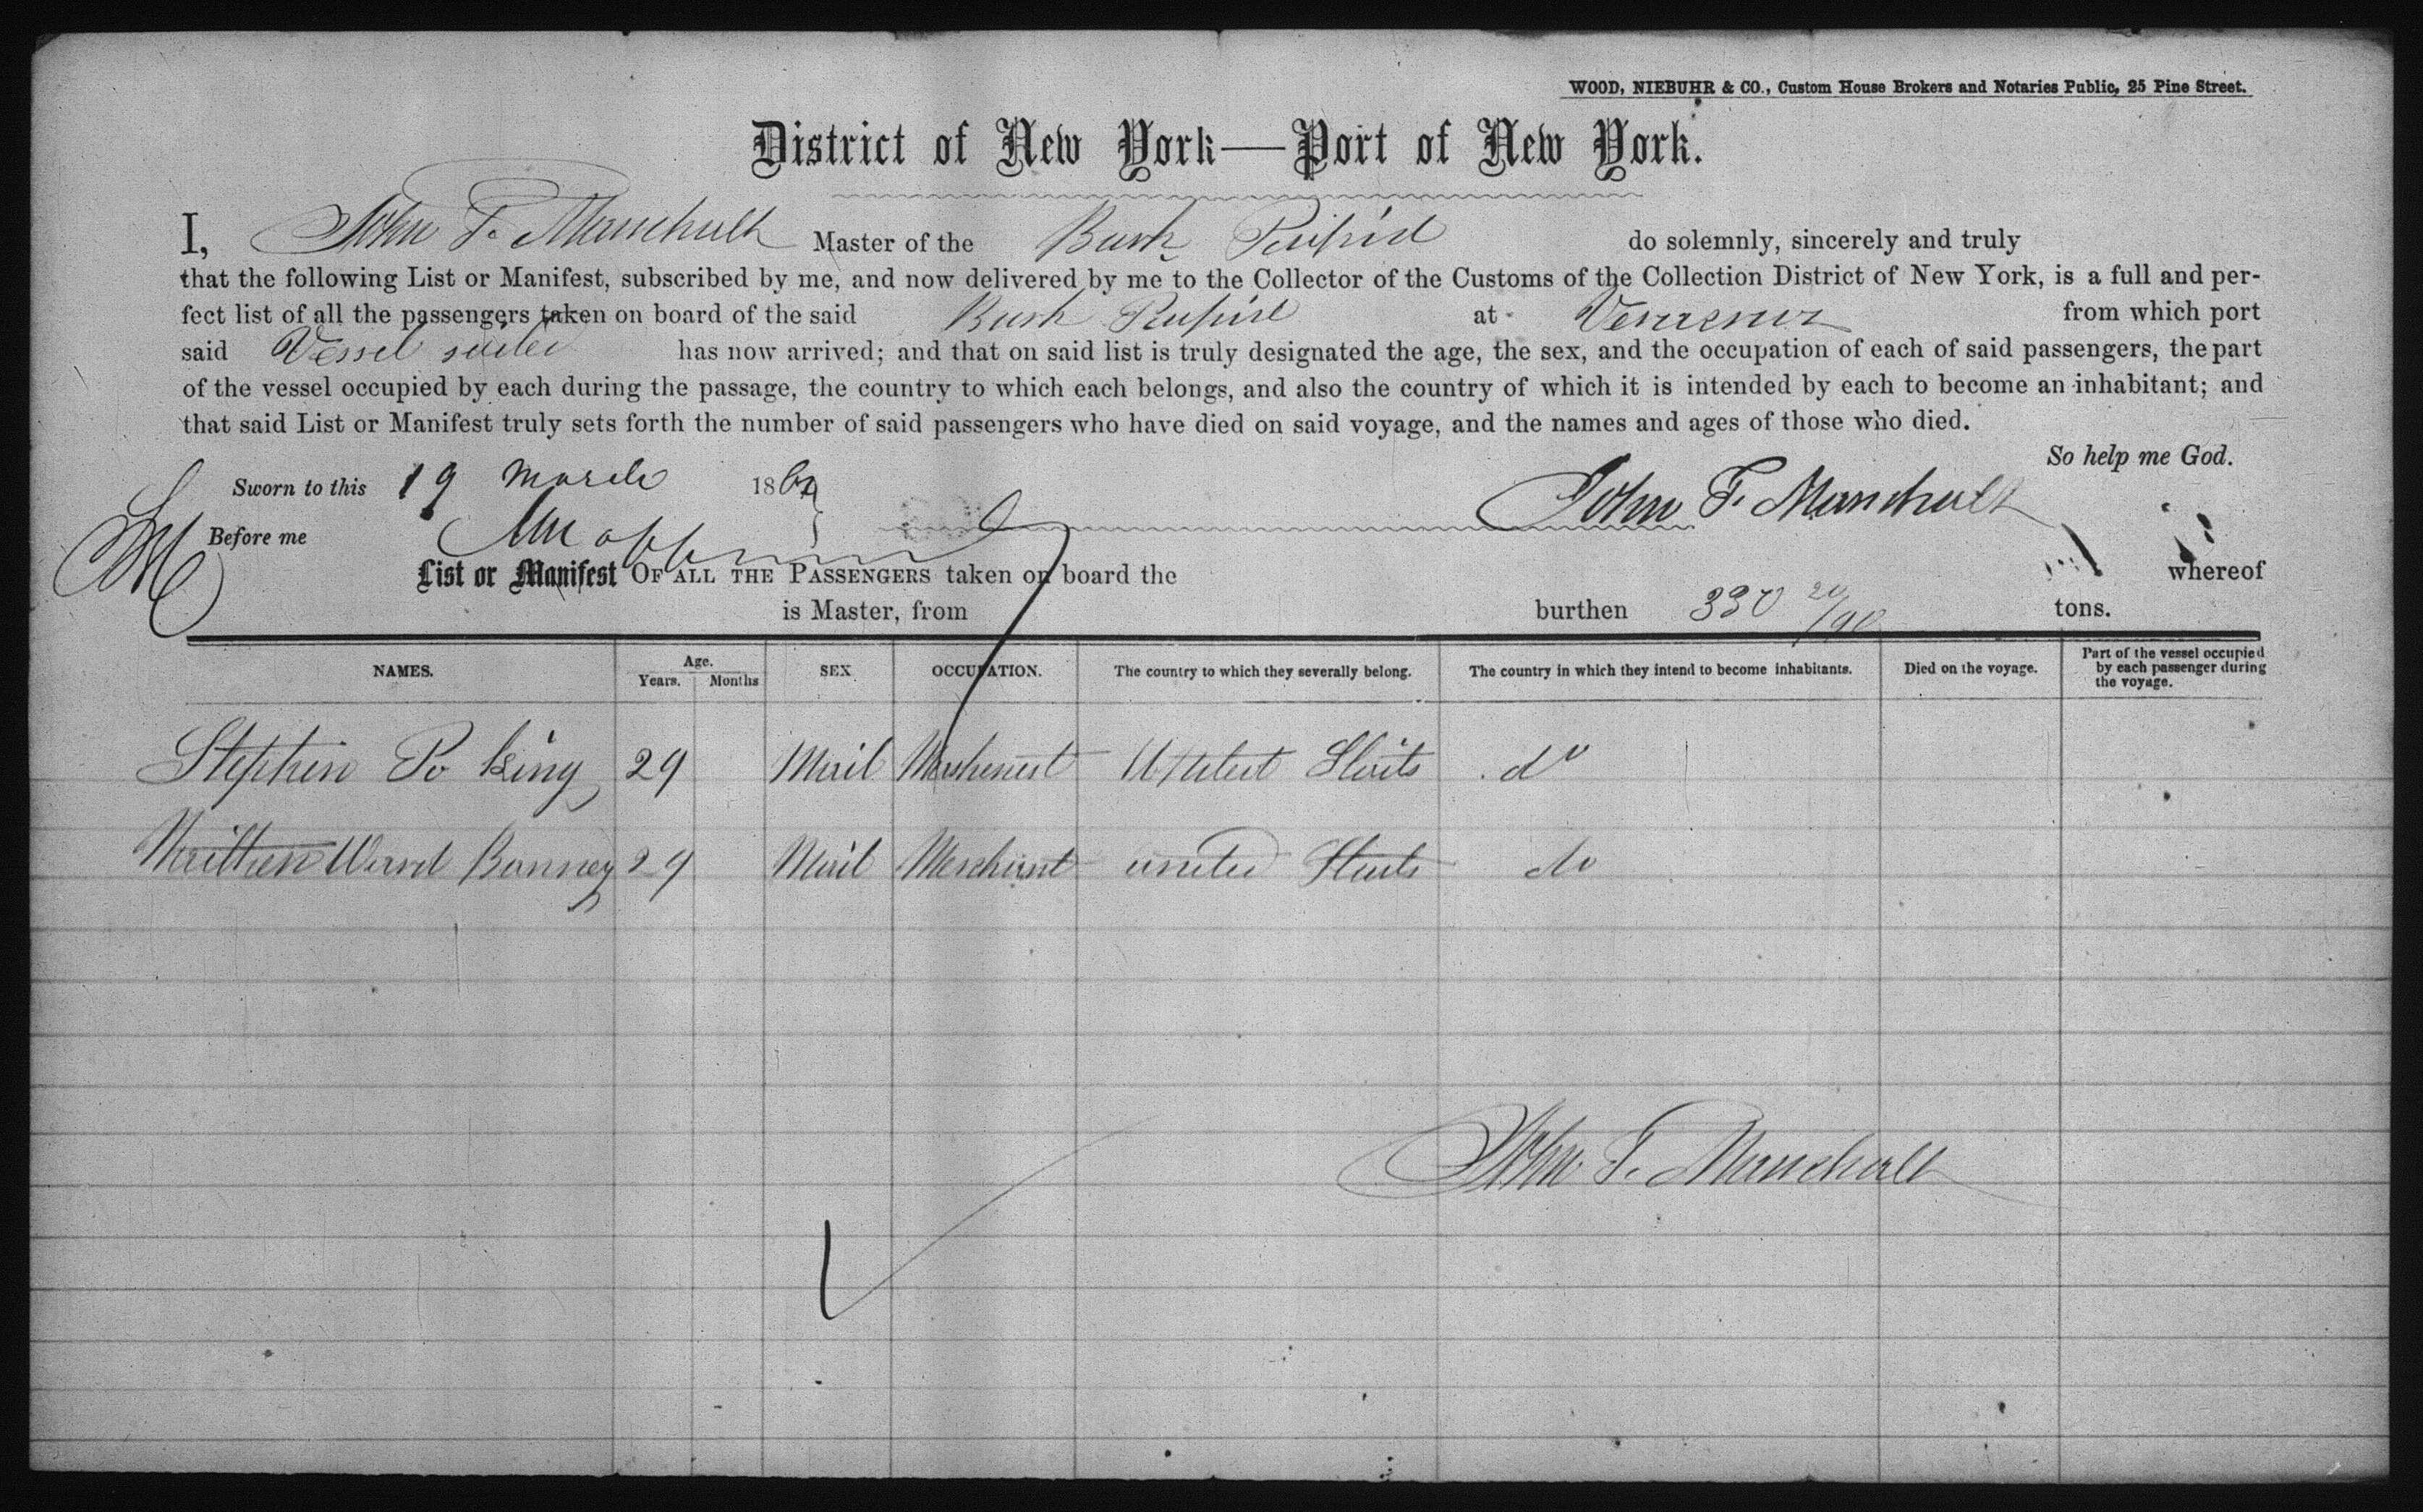 WOOD, NIEBUHR & CO., Custom House Brokers and Notaries Public, 25 Pine Street.
District of New York—Port of New York.
I, John F. Manchult Master of the Bark do solemnly, sincerely and truly
that the following List or Manifest, subscribed by me, and now delivered by me to the Collector of the Customs of the Collection District of New York, is a full and per-
fect list of all the passengers taken on board of the said Bark at from which port
said Vessel has now arrived; and that on said list is truly designated the age, the sex, and the occupation of each of said passengers, the part
of the vessel occupied by each during the passage, the country to which each belongs, and also the country of which it is intended by each to become an inhabitant; and
that said List or Manifest truly sets forth the number of said passengers who have died on said voyage, and the names and ages of those who died.
So help me God.
Sworn to this 19 March 186 John F. Manchult
Before me
List or Manifest OF ALL THE PASSENGERS taken on board the whereof
is Master, from burthen 330 20/90 tons.
NAMES. Age. Years. Months SEX OCCUPATION. The country to which they severally belong. The country in which they intend to become inhabitants. Died on the voyage. Part of the vessel occupied by each passenger during the voyage.
Stephen Po King 29 Mail United Staits do
Ward Bonney 29 Mail Merchant united Staits do
John F. Manchult